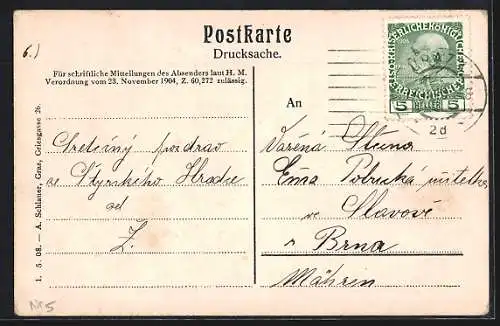 6.)
Postkarte
Drucksache.
Für schriftliche Mitteilungen des Absenders laut H. M.
Verordnung vom 23. November 1904, Z. 60,272 zulässig.
An
KAISERLICHE KÖNIGLICHE
ÖSTERREICHISCHE POST
5 HELLER 5
GRAZ
2d
Srdečný pozdrav
ze Štyrského Hradce
od
Ž.
Vážená Slečna
Ema Pokorná učitelka
ve Slavově
u Brna
Mähren
1. 5. 08. – A. Schlauer, Graz, Griesgasse 26.
№ 5